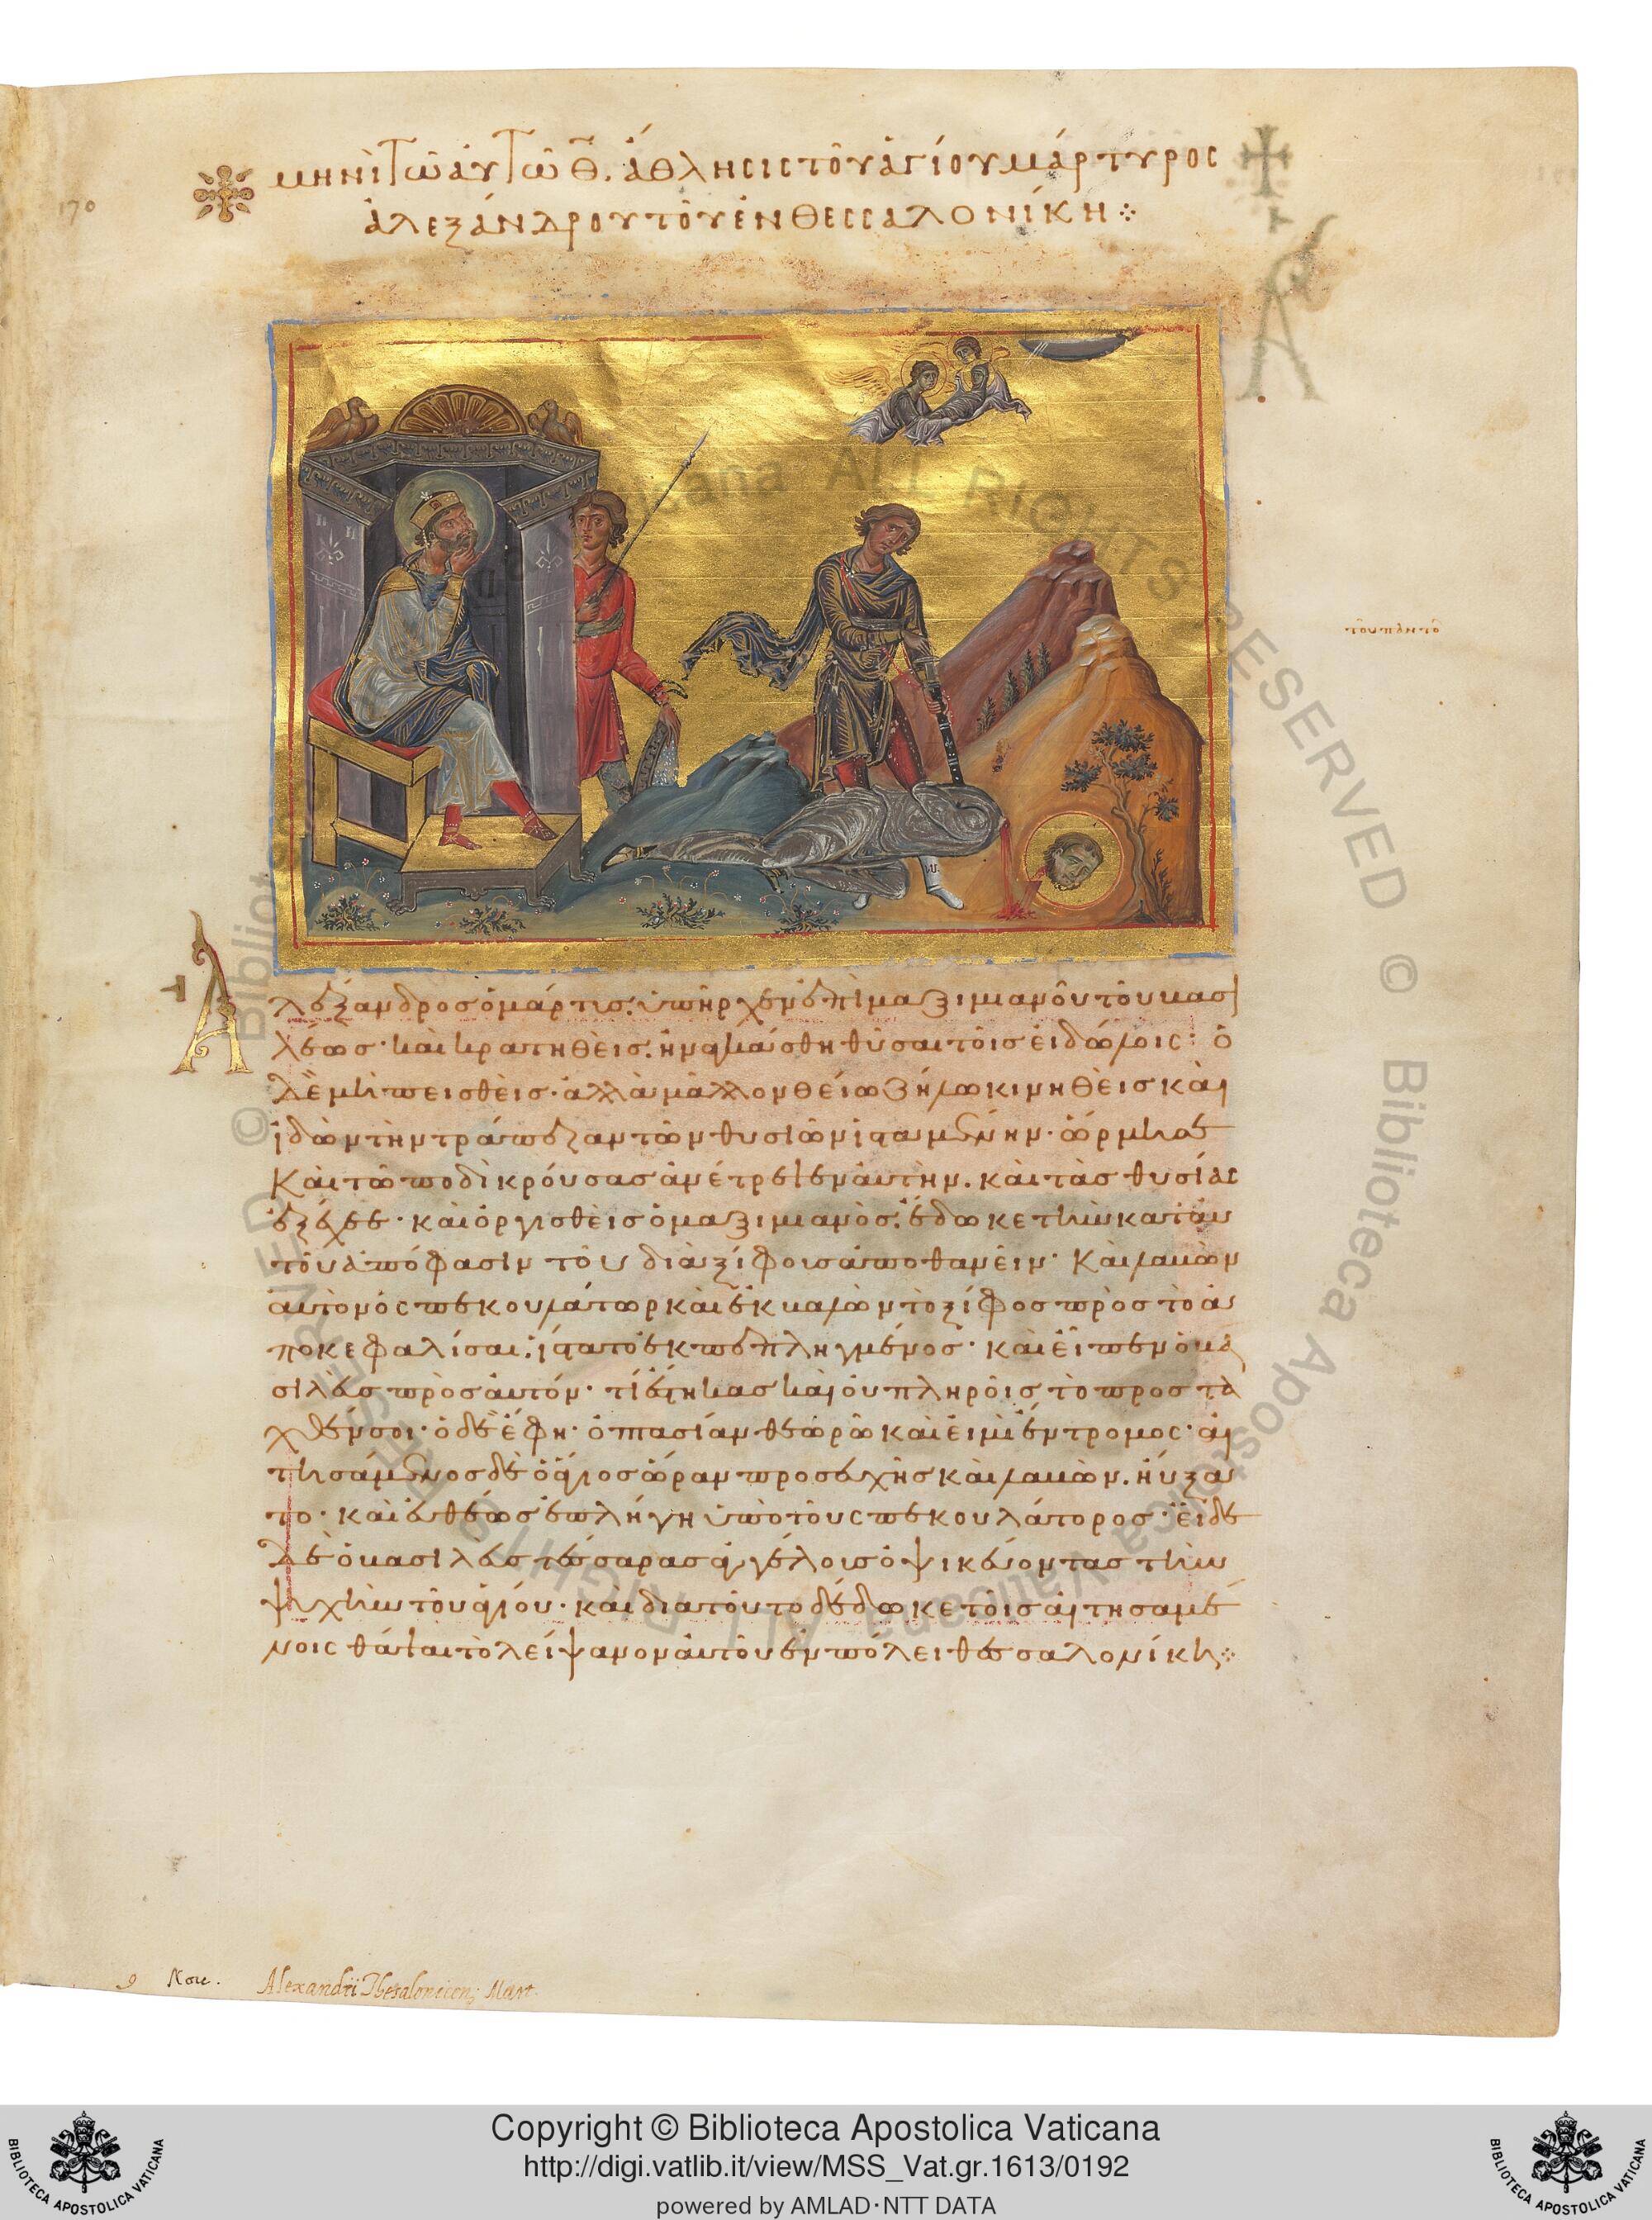 170
μηνὶ τῶ αὐτῶ θ̅. ἄθλησις τοῦ ἁγίου μάρτυρος
ἀλεξάνδρου τοῦ ἐν θεσσαλονίκη ⁘
τοῦ πρητό
Ἀλέξανδρος ὁ μάρτυς, ὑπῆρχεν ἐπὶ μαξιμιανοῦ τοῦ βασι
λέως· καὶ κρατηθεὶς, ἠναγκάσθη θῦσαι τοῖς εἰδώλοις· ὁ
δὲ μὴ πεισθεὶς· ἀλλὰ μᾶλλον θείω ζήλω κινηθεὶς καὶ
ἰδὼν τὴν τράπεζαν τῶν θυσιῶν ἱσταμένην· ὥρμησε
καὶ τῶ ποδὶ κρούσας ἀνέτρεψεν αὐτὴν. καὶ τὰς θυσίας
ἐξέχεε· καὶ ὀργισθεὶς ὁ μαξιμιανὸς, ἔδωκε τὴν κατ' αὐ
τοῦ ἀπόφασιν τοῦ διὰ ξίφους ἀποθανεῖν· καὶ λαβὼν
αὐτὸν ὁ σπεκουλάτωρ καὶ ἐκβαλὼν τὸ ξίφος πρὸς τὸ ἀ
ποκεφαλίσαι, ἵστατο ἐκπεπληγμένος· καὶ εἶπεν ὁ βα
σιλεὺς πρὸς αὐτόν· τί ἕστηκας καὶ οὐ πληροῖς τὸ προστα
χθέν σοι· ὁ δὲ ἔφη· ὀπτασίαν θεωρῶ καὶ εἰμὶ ἔντρομος· αἰ
τησάμενος δὲ ὁ ἅγιος ὥραν προσευχῆς καὶ λαβὼν, ηὔξα
το· καὶ εὐθέως ἐπλήγη ὑπὸ τοῦ σπεκουλάτορος· εἶδε
δὲ ὁ βασιλεὺς τέσσαρας ἀγγέλους ὀψικεύοντας τὴν
ψυχὴν τοῦ ἁγίου· καὶ διατοῦτο δέδωκε τοῖς αἰτησαμέ
νοις θάψαι τὸ λείψανον αὐτοῦ ἐν πόλει θεσσαλονίκη ⁘
9 Nove. Alexandri Thesalonicen. Mart.
Copyright © Biblioteca Apostolica Vaticana
http://digi.vatlib.it/view/MSS_Vat.gr.1613/0192
powered by AMLAD·NTT DATA
BIBLIOTECA APOSTOLICA VATICANA
BIBLIOTECA APOSTOLICA VATICANA
© Biblioteca Apostolica Vaticana ALL RIGHTS RESERVED © Biblioteca Apostolica Vaticana ALL RIGHTS RESERVED